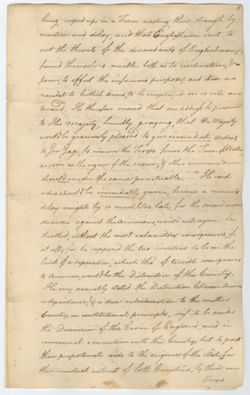 being cooped up in a Town wasting their strength by
madness and delay, and that Englishmen sent to
cut the throats of the descendants of Englishmen,
found themselves unable both as to inclination &
power, to effect the infamous purpose, and it was
scandal to British arms to be employed in so vile and
He therefore moved that an address be presented
to His Majesty, humbly praying that His Majesty
would be graciously pleased to give immediate orders
to Gen. Gage, to remove the Troops from the Town of Boston
as soon as the rigour of the season, & other circumstances
should render the same practicable. — He said
that should be immediately given, because a moment's
delay might be so much too late, for the sword once
drawn against the Americans would not again be
sheathed, without the most calamitous consequences, if
at all; for he supposed the two countries to be on the
brink of a separation, which tho' of trivial consequences
to America, would be the destruction of this Country.
He very accurately stated the Distinction between American
independence, & a due subordination to the mother
Country, on constitutional principles, not to be under
the Dominion of the Crown of England, and in
commercial connection with this Country, but to grant
their proportionate aids to the exigences of the State, for
the mutual interest of both Countries, by their own